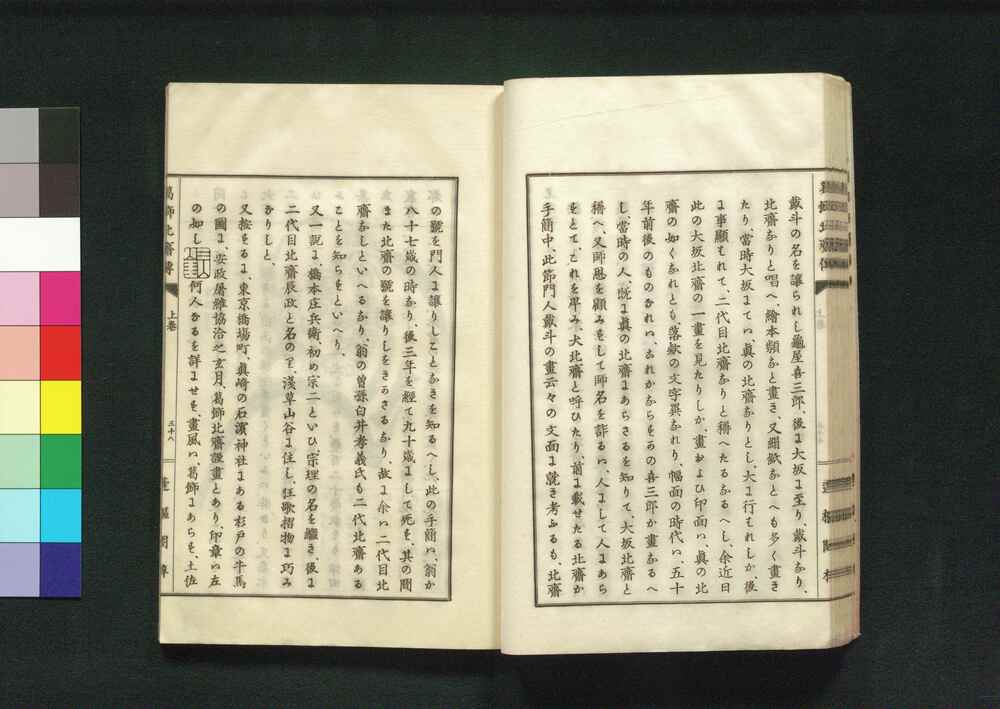 戴斗の名を讓られし龜屋喜三郎、後に大坂に至り、戴斗なり、
北齋なりと唱へ、繪本類なと畫き、又絹紙なとへも多く畫き
たり、當時大坂にてハ、眞の北齋なりとし、大に行もれしか、後
に事顯もれて、二代目北齋なりと稱へたるなるへし、余近日
此の大坂北齋の一畫を見たりしか、畫および印面ハ、眞の北
齋の如くなれとも、落欵の文字異なれり、幅面の時代ハ、五十
年前後のものなれハ、これかならすこの喜三郎か畫なるへ
し、當時の人、既に眞の北齋にあらさるを知りて、大坂北齋と
稱へ、又師恩を顧みすして師名を詐るハ、人にして人にあら
すとて、これを卑み、犬北齋と呼ひたり、前に載せたる北齋か
手簡中、此節門人戴斗の畫云々の文面に就き考ふるも、北齋
の號を門人に讓りしことなきを知るへし、此の手簡ハ、翁か
八十七歳の時なり、後三年を經て九十歳にして死す、其の間
また北齋の號を讓りしをきかさるなり、故に余ハ二代目北
齋なしといへるなり、翁の曾孫白井孝義氏も二代北齋ある
ことを知らすといへり、
又一説に、橋本庄兵衛、初め宗二といひ、宗理の名を繼き、後に
二代目北齋辰政と名のり、淺草山谷に住し、狂歌摺物に巧み
なりしと、
又按するに、東京橋場町、眞崎の石濱神社にある杉戸の牛馬
の圖に、安政屠維協洽之玄月、葛飾北齋謹畫とあり、印章ハ左
の如し 何人なるを詳にせす、畫風ハ、葛飾にあらす、土佐
葛飾北齋傳
上卷
三十八